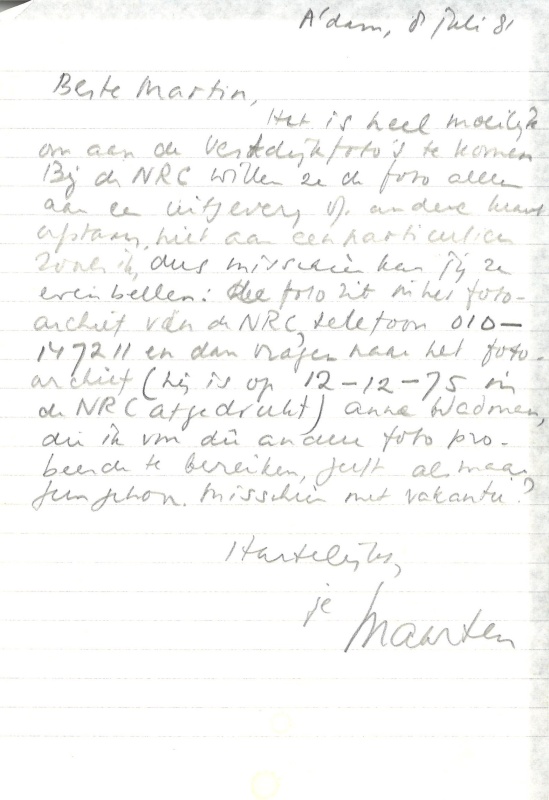 A'dam, 8 juli 81
Beste Martin,
Het is heel moeilijk
om aan de Vestdijkfoto's te komen
Bij de NRC willen ze de foto alleen
aan een uitgeverij of andere krant
afstaan, niet aan een particulier
zoals ik, dus misschien kan jij ze
even bellen: de foto zit in het foto-
archief van de NRC, telefoon 010-
147211 en dan vragen naar het foto-
archief (hij is op 12-12-75 in
de NRC afgedrukt) Anne Wadman,
die ik om die andere foto pro-
beerde te bereiken, geeft almaar
geen gehoor. Misschien met vakantie?
Hartelijks,
je
Maarten